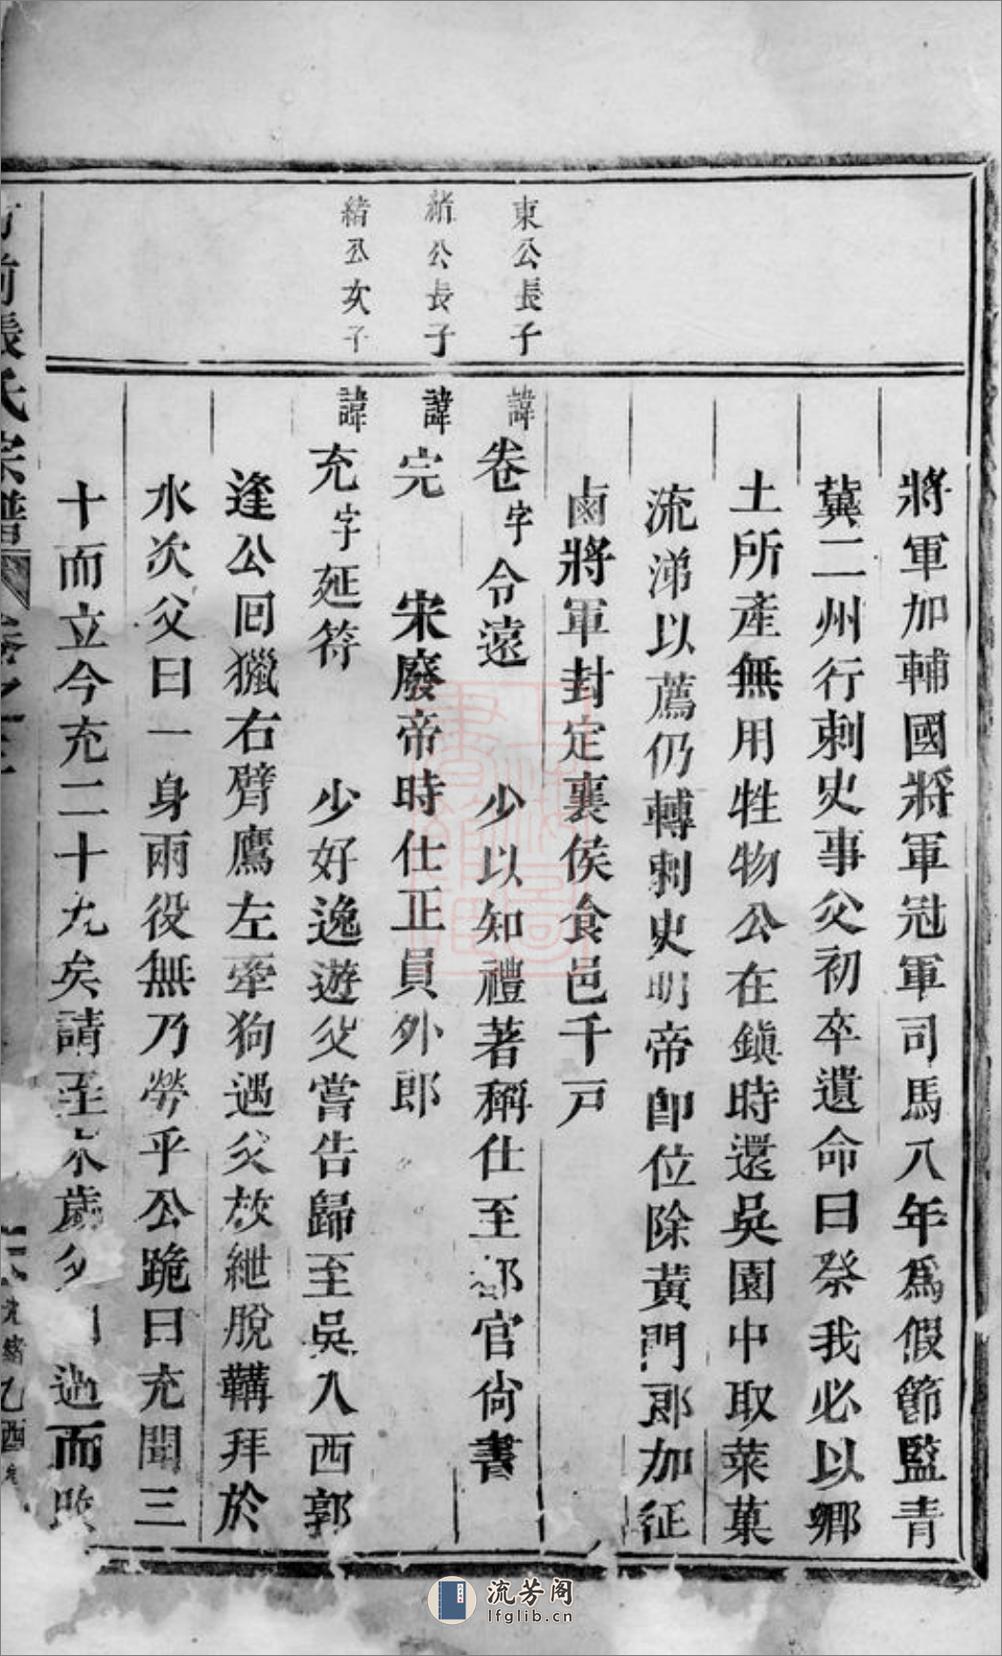 將軍加輔國將軍冠軍司馬八年為假節監青
冀二州行刺史事父初卒遺命曰祭我必以鄉
土所產無用牲物公在鎮時還吳園中取菜菓
流涕以薦仍轉刺史明帝即位除黃門郎加征
鹵將軍封定襄侯食邑千戶
東公長子
諱卷字令遠 少以知禮著稱仕至都官尚書
緒公長子
諱完 宋廢帝時仕正員外郎
緒公次子
諱充字延符 少好逸遊父嘗告歸至吳入西郭
逢公回獵右臂鷹左牽狗遇父放紲脫鞲拜於
水次父曰一身兩役無乃勞乎公跪曰充聞三
十而立今充二十九矣請至來歲 過而改
張氏宗譜
光緒乙酉年
流芳阁
lfglib.cn